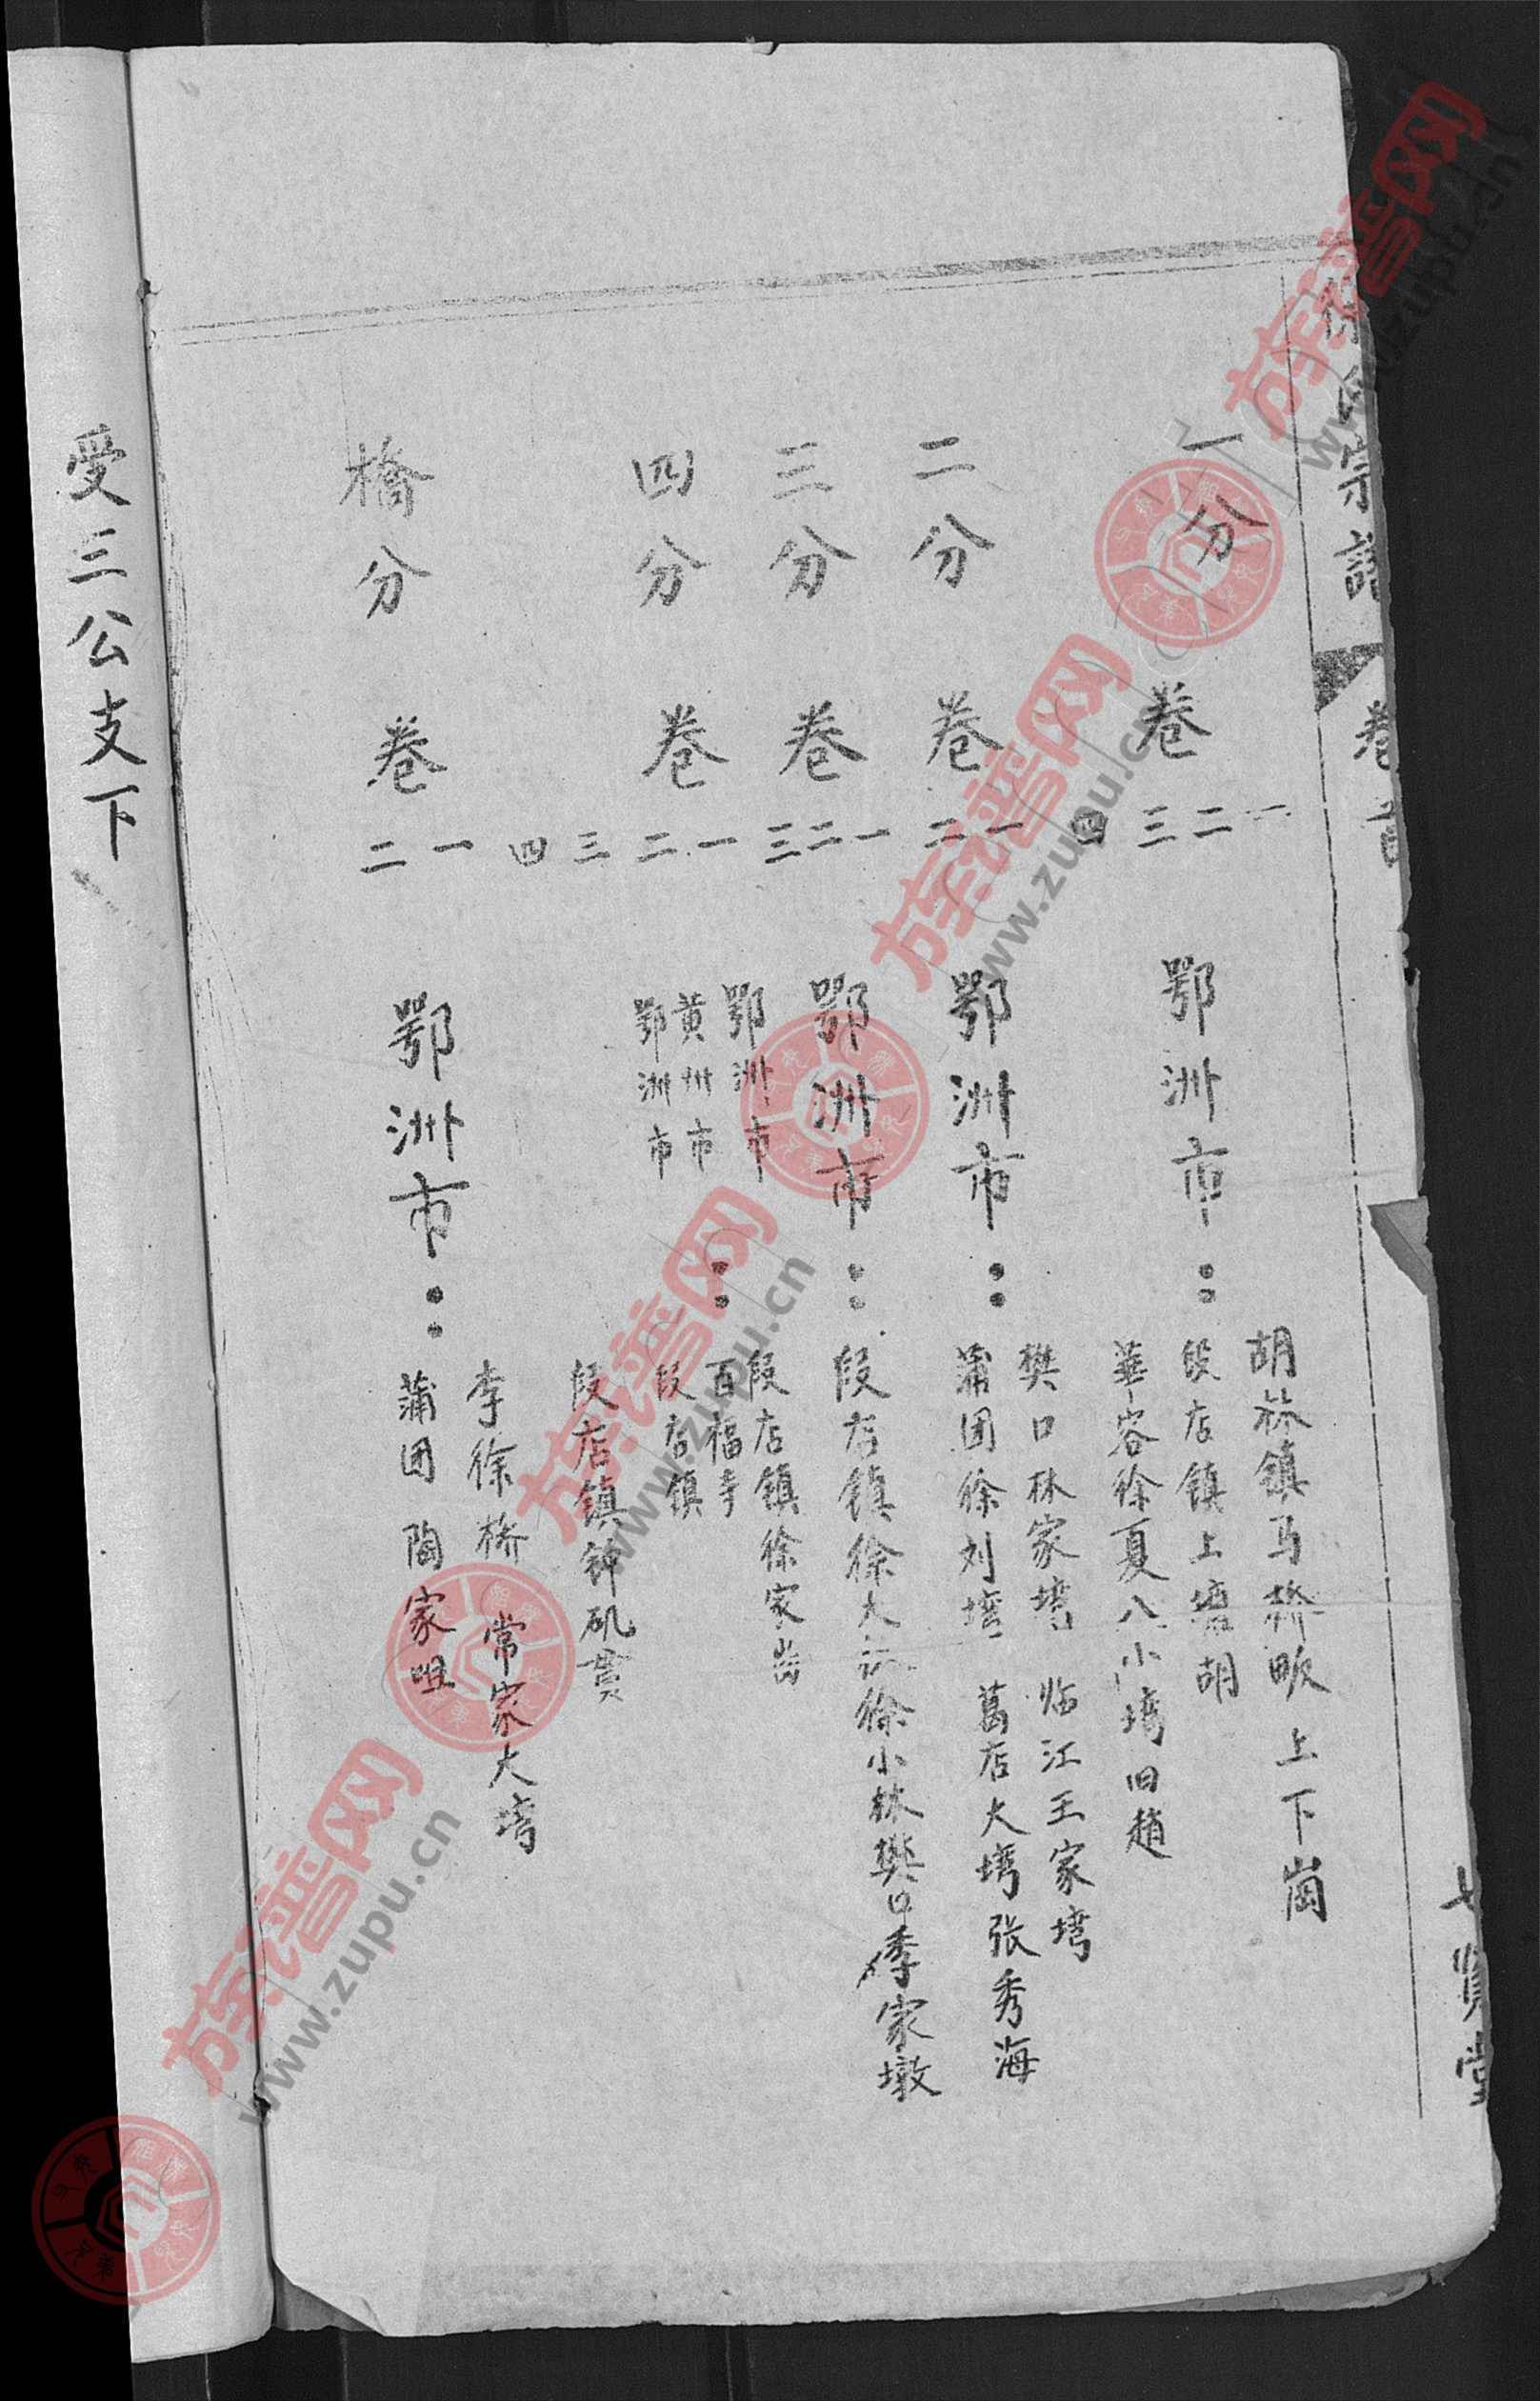 宗譜 卷首
七賢堂
一分 卷 一 二 三 四 鄂洲市：
胡林镇马桥畈 上下崗
段店镇上塘胡
華容徐夏八小塆旧趙
二分 卷 一 二 鄂洲市：
樊口林家塆 临江王家塆
蒲团徐刘塆 葛店大塆张秀海
三分 卷 一 二 三 鄂洲市：
段店镇徐大 徐小林樊口李家墩
四分 卷 一 二 三 四
鄂洲市
黄州市：
鄂洲市
段店镇徐家
百福寺
段店镇
段店镇钟矶
橋分 卷 一 二 鄂洲市：
李徐桥 常家大塆
蒲团 陶家咀
受三公支下
族谱网
www.zupu.cn